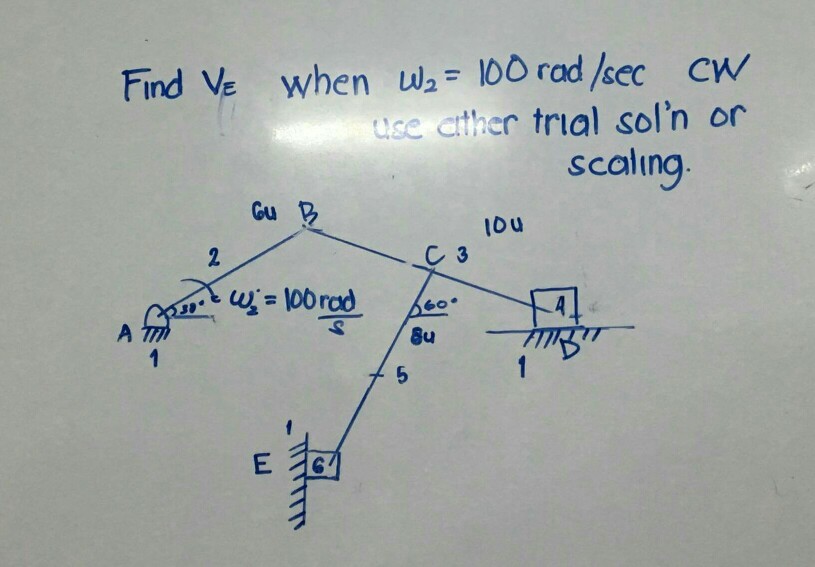 Find VE when ω2 = 100 rad/sec CW
use either trial sol'n or
scaling.
6u B
10u
2
C 3
30° ω2 = 100 rad/s
60°
4
A
8u
1
D
1
5
1
E
6